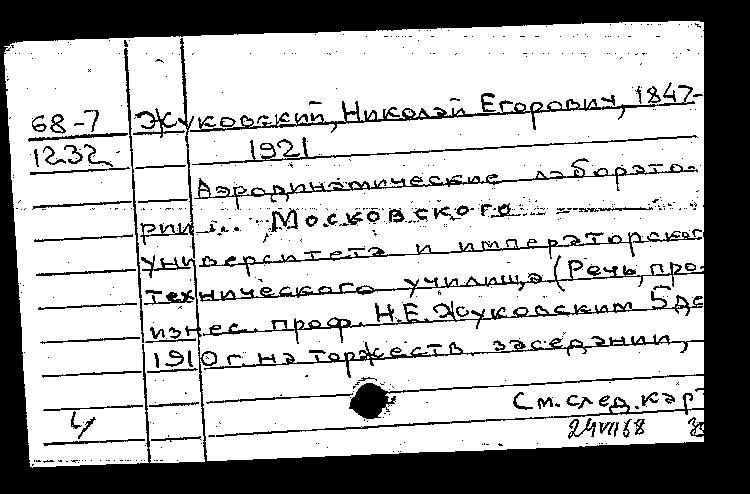 68-7 Жуковский, Николай Егорович, 1847-
1232 1921
Аэродинамические лаборато-
рии ... Московского
университета и императорског
технического училища (Речь, про-
изнес. проф. Н.Е. Жуковским 5 де
1910 г. на торжеств. заседании,
См. след. карт
4 24 VII 68